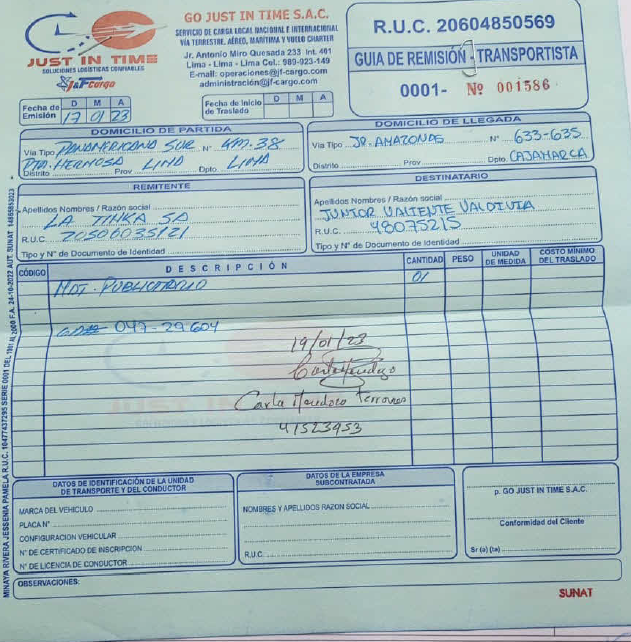 GO JUST IN TIME S.A.C.
SERVICIO DE CARGA LOCAL NACIONAL E INTERNACIONAL
VÍA TERRESTRE, AÉREO, MARÍTIMA Y VUELO CHARTER
Jr. Antonio Miro Quesada 233 Int. 401
Lima - Lima - Lima Cel.: 989-023-149
E-mail: operaciones@jf-cargo.com
administración@jf-cargo.com
JUST IN TIME
SOLUCIONES LOGÍSTICAS CONFIABLES
J&F Cargo
R.U.C. 20604850569
GUIA DE REMISIÓN - TRANSPORTISTA
0001- Nº 001586
Fecha de Emisión D M A
17 01 23
Fecha de Inicio de Traslado D M A
DOMICILIO DE PARTIDA
Vía Tipo PANAMERICANA SUR Nº KM. 38
PTA. HERMOSA LIMA LIMA
Distrito Prov Dpto.
DOMICILIO DE LLEGADA
Vía Tipo JR. AMAZONAS Nº 633-635
Distrito Prov Dpto. CAJAMARCA
REMITENTE
Apellidos Nombres / Razón social
LA TINKA SA
R.U.C. 20506035121
Tipo y Nº de Documento de Identidad
DESTINATARIO
Apellidos Nombres / Razón social
JUNIOR VALIENTE VALDIVIA
R.U.C. 48075215
Tipo y Nº de Documento de Identidad
CÓDIGO DESCRIPCIÓN CANTIDAD PESO UNIDAD DE MEDIDA COSTO MÍNIMO DEL TRASLADO
MAT. PUBLICITARIO 01
047-29604
19/01/23
Carla Mendoza Terrones
41523953
JUST IN TIME
DATOS DE IDENTIFICACIÓN DE LA UNIDAD
DE TRANSPORTE Y DEL CONDUCTOR
MARCA DEL VEHICULO
PLACA Nº
CONFIGURACION VEHICULAR
Nº DE CERTIFICADO DE INSCRIPCION
Nº DE LICENCIA DE CONDUCTOR
DATOS DE LA EMPRESA
SUBCONTRATADA
NOMBRES Y APELLIDOS RAZON SOCIAL
R.U.C.
p. GO JUST IN TIME S.A.C.
Conformidad del Cliente
Sr (a) (ta)
OBSERVACIONES:
SUNAT
MINAYA RIVERA JESSENIA PAMELA R.U.C. 10477437295 SERIE 0001 DEL 1001 AL 2000 F.A. 24-10-2022 AUT. SUNAT